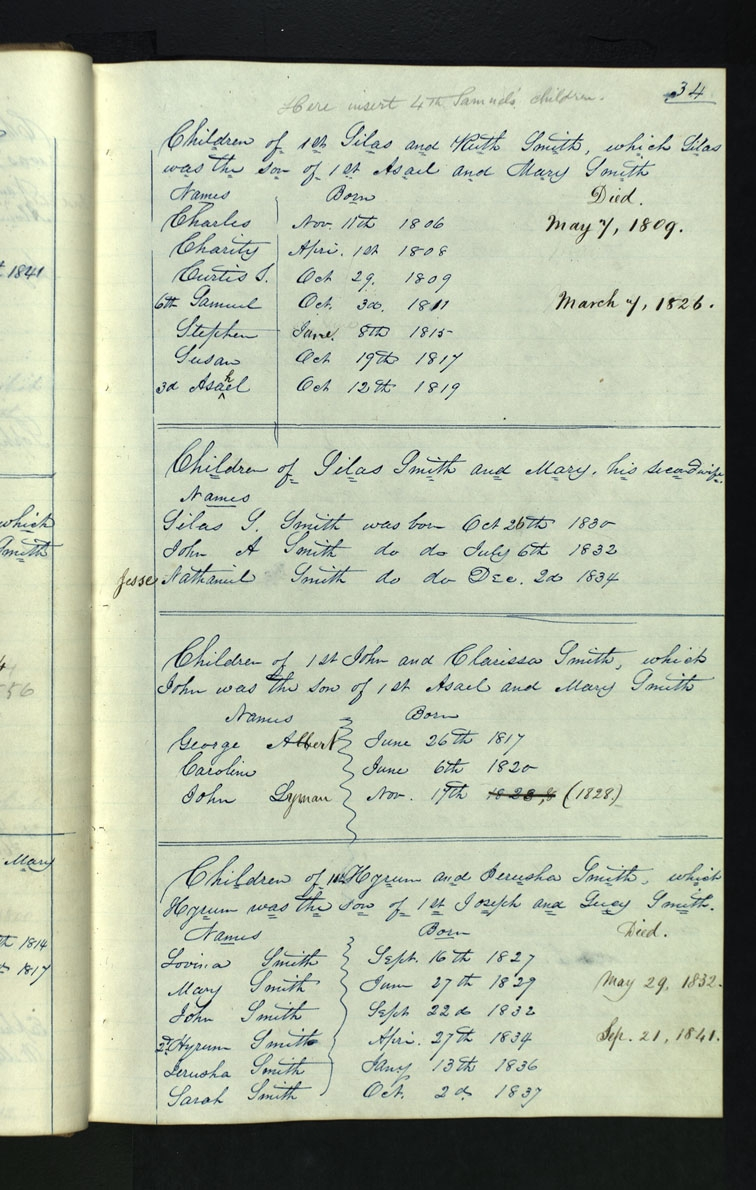 34
Here insert 4th Samuels' children.
Children of 1st Silas and Ruth Smith, which Silas
was the son of 1st Asael and Mary Smith
Names Born Died.
Charles Nov. 11th 1806 May 7, 1809.
Charity Apri. 1st 1808
Curtis S. Oct 29. 1809
6th Samuel Oct. 3d. 1811 March 7, 1826.
Stephen June 8th 1815
Susan Oct 19th 1817
3d Asahel Oct 12th 1819
Children of Silas Smith and Mary, his secand wife.
Names
Silas S. Smith was born Oct 26th 1830
John A Smith do do July 6th 1832
Jesse Nathaniel Smith do do Dec. 2d 1834
Children of 1st John and Clarissa Smith, which
John was the son of 1st Asael and Mary Smith
Names Born
George Albert June 26th 1817
Caroline June 6th 1820
John Lyman Nov. 17th 1823,8 (1828.)
Children of 1st Hyrum and Jerusha Smith, which
Hyrum was the son of 1st Joseph and Lucy Smith.
Names Born Died.
Lovina Smith Sept. 16th 1827
Mary Smith June 27th 1829 May 29, 1832.
John Smith Sept 22d 1832
2d Hyrum Smith Apri. 27th 1834 Sep. 21, 1841.
Jerusha Smith Jany 13th 1836
Sarah Smith Oct. 2d. 1837
t 1841
which
Smith
56
Mary
th 1814
1817